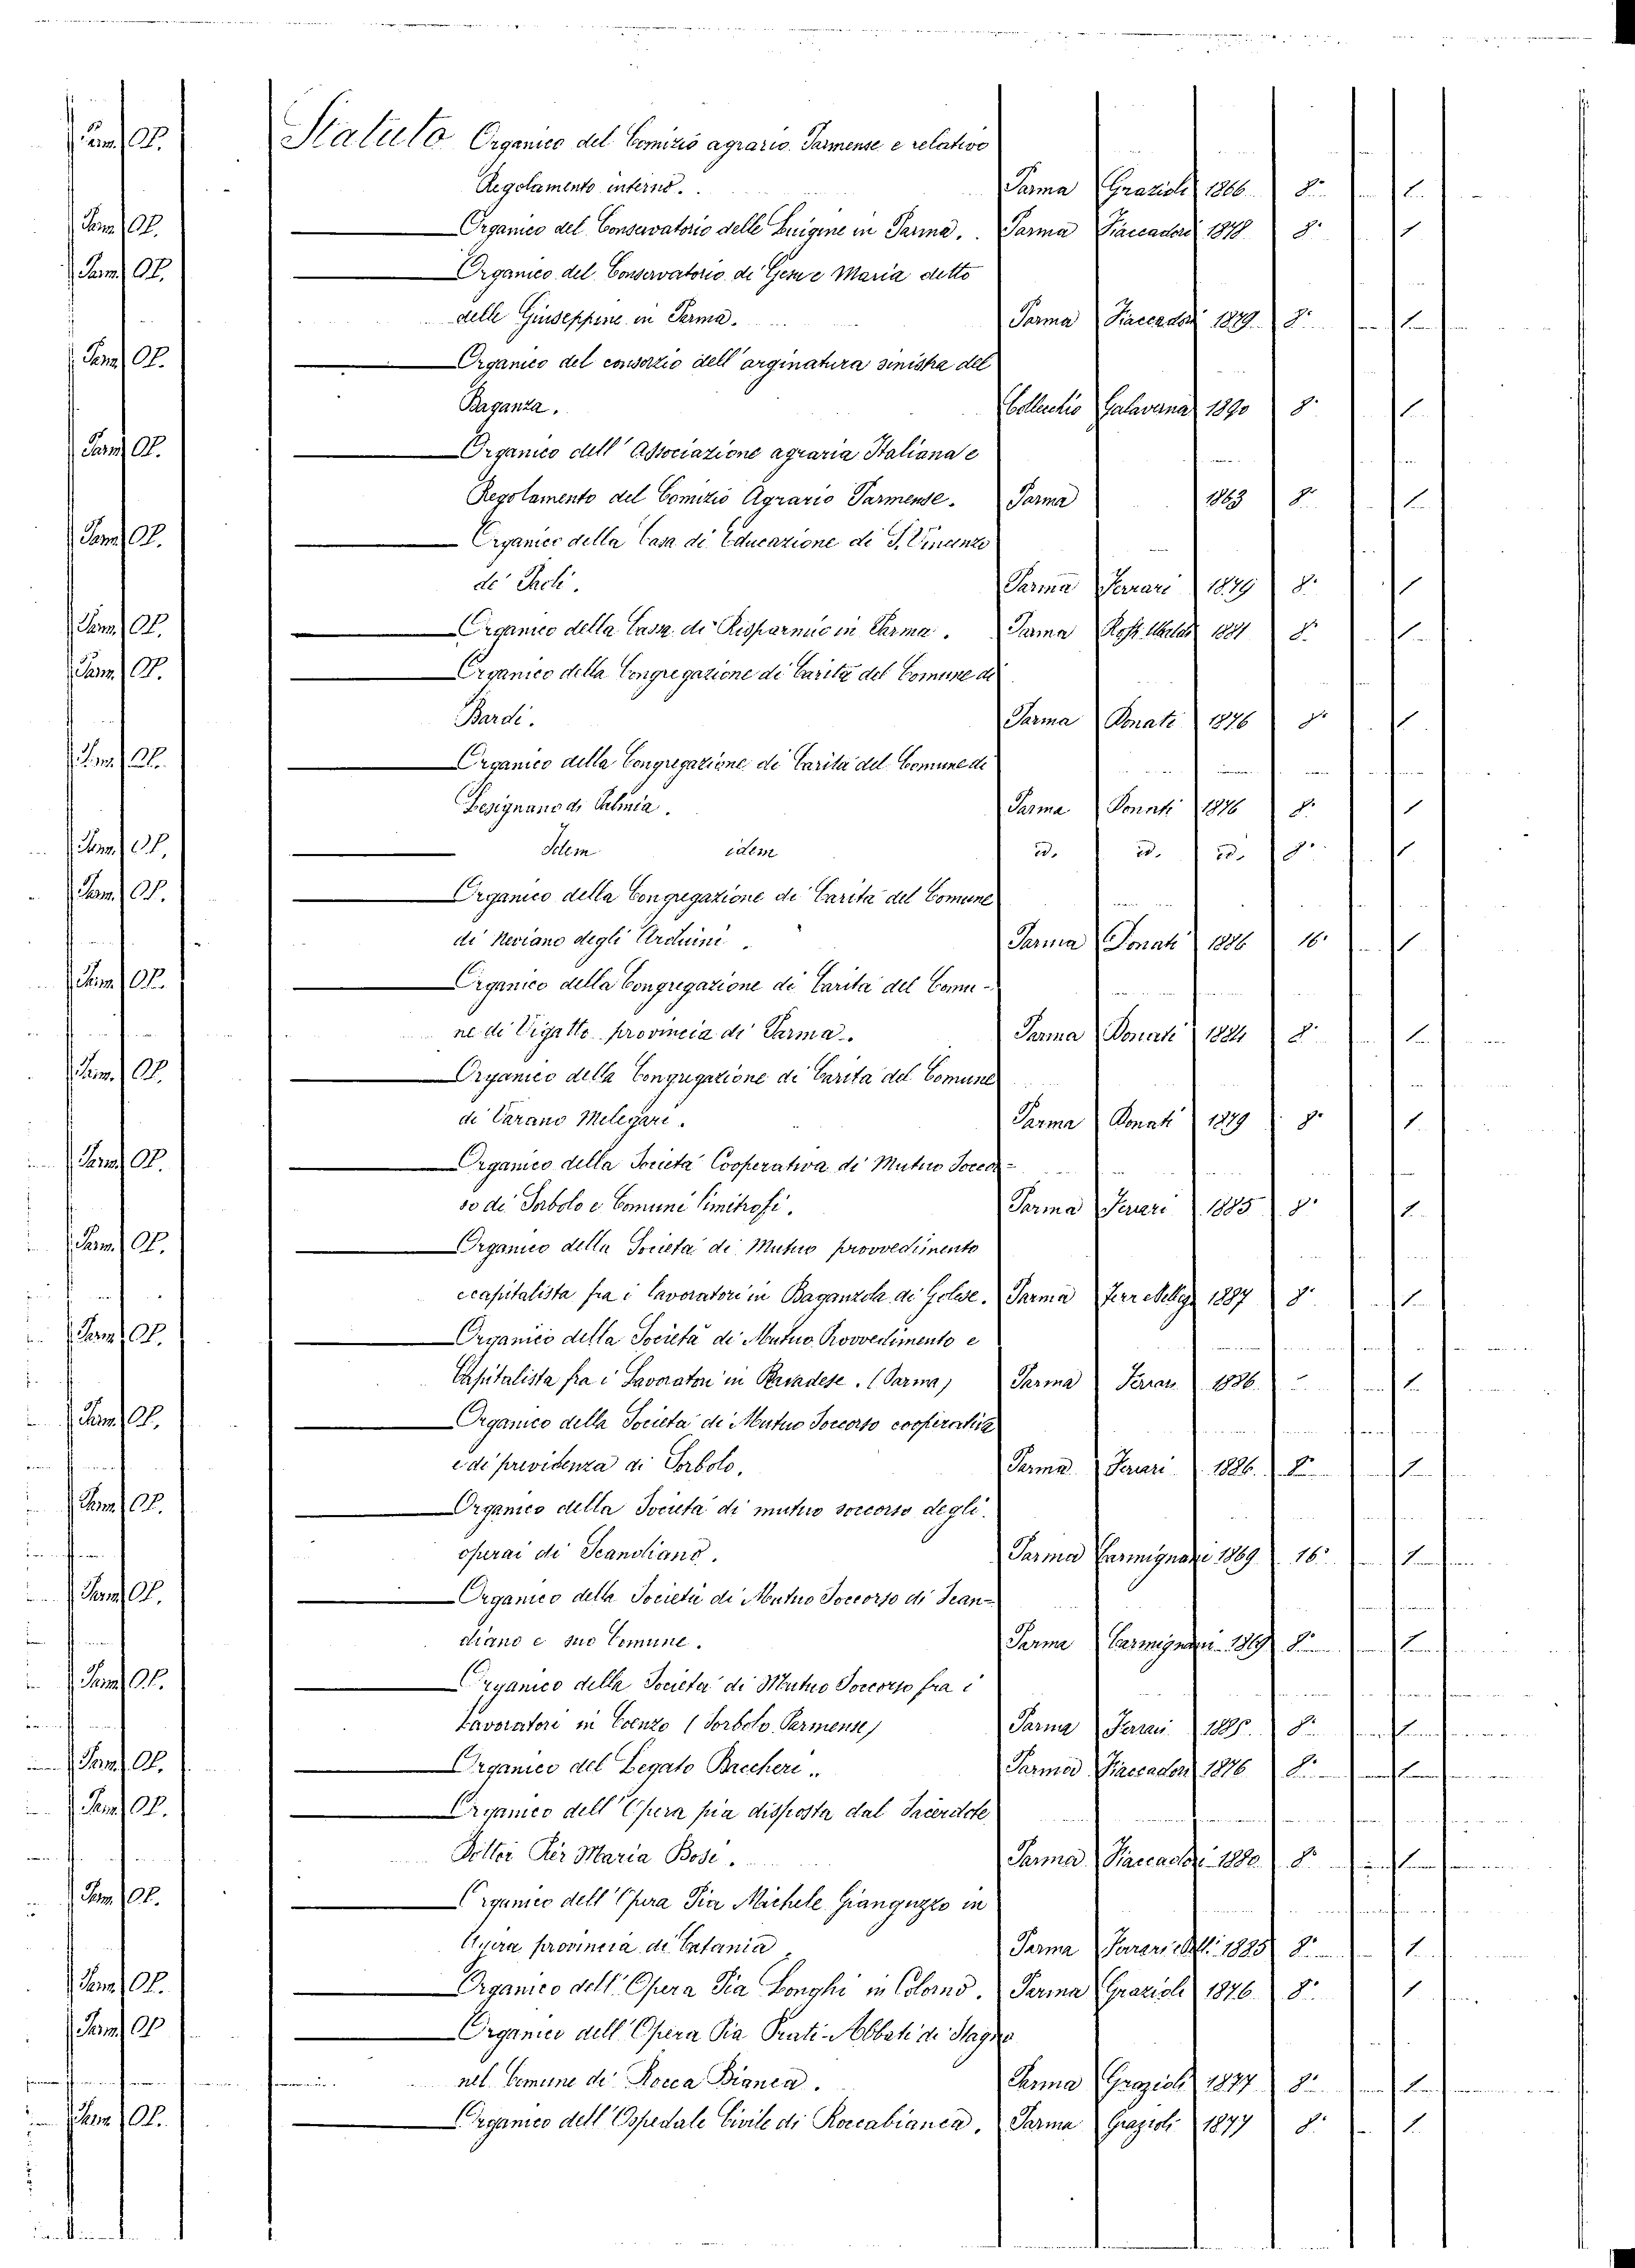 Parm. OP. Statuto Organico del Comizio agrario Parmense e relativo
Regolamento interno. Parma Grazioli 1866 8° 1
Parm. OP. Organico del Conservatorio delle Luigine in Parma. Parma Fiaccadori 1878 8° 1
Parm. OP. Organico del Conservatorio di Gesù e Maria detto
delle Giuseppine in Parma. Parma Fiaccadori 1879 8° 1
Parm. OP. Organico del consorzio dell'arginatura sinistra del
Baganza. Collechio Galaverna 1890 8° 1
Parm. OP. Organico dell'Associazione agraria Italiana e
Regolamento del Comizio Agrario Parmense. Parma 1863 8° 1
Parm. OP. Organico della Casa di Educazione di S. Vincenzo
de' Paoli. Parma Ferrari 1879 8° 1
Parm. OP. Organico della Cassa di Risparmio in Parma. Parma 1881 8° 1
Parm. OP. Organico della Congregazione di Carità del Comune di
Bardi. Parma Donati 1876 8° 1
Parm. OP. Organico della Congregazione di Carità del Comune di
Lesignano di Palmia. Parma Donati 1876 8° 1
Parm. OP. Idem idem id. id. id. 8° 1
Parm. OP. Organico della Congregazione di Carità del Comune
di Neviano degli Arduini. Parma Donati 1886 16° 1
Parm. OP. Organico della Congregazione di Carità del Comu-
ne di Vigatto provincia di Parma. Parma Donati 1884 8° 1
Parm. OP. Organico della Congregazione di Carità del Comune
di Varano Melegari. Parma Donati 1879 8° 1
Parm. OP. Organico della Società Cooperativa di Mutuo Soccor-
so di Sorbolo e Comuni limitrofi. Parma Ferrari 1885 8° 1
Parm. OP. Organico della Società di Mutuo provvedimento
e capitalista fra i lavoratori in Baganzola di Golese. Parma Ferr e Pelleg. 1887 8° 1
Parm. OP. Organico della Società di Mutuo Provvedimento e
Capitalista fra i Lavoratori in Ravadese. (Parma) Parma Ferrari 1886 1
Parm. OP. Organico della Società di Mutuo Soccorso cooperativa
e di previdenza di Sorbolo. Parma Ferrari 1886 8° 1
Parm. OP. Organico della Società di mutuo soccorso degli
operai di Scandiano. Parma Carmignani 1869 16° 1
Parm. OP. Organico della Società di Mutuo Soccorso di Scan-
diano e suo Comune. Parma Carmignani 1869 8° 1
Parm. OP. Organico della Società di Mutuo Soccorso fra i
Lavoratori in Coenzo (Sorbolo Parmense) Parma Ferrari 8° 1
Parm. OP. Organico del Legato Breccheri. Parma Fiaccadori 1876 8° 1
Parm. OP. Organico dell'Opera pia disposta dal Sacerdote
Dottor Pier Maria Bosi. Parma Fiaccadori 1880 8° 1
Parm. OP. Organico dell'Opera Pia Michele Gianguzzo in
Agira provincia di Catania Parma 1885 8° 1
Parm. OP. Organico dell'Opera Pia Longhi in Colorno. Parma Grazioli 1876 8° 1
Parm. OP Organico dell'Opera Pia Prati-Abbati di
nel Comune di Rocca Bianca. Parma Grazioli 1877 8° 1
Parm OP. Organico dell'Ospedale Civile di Roccabianca. Parma Grazioli 1877 8° 1